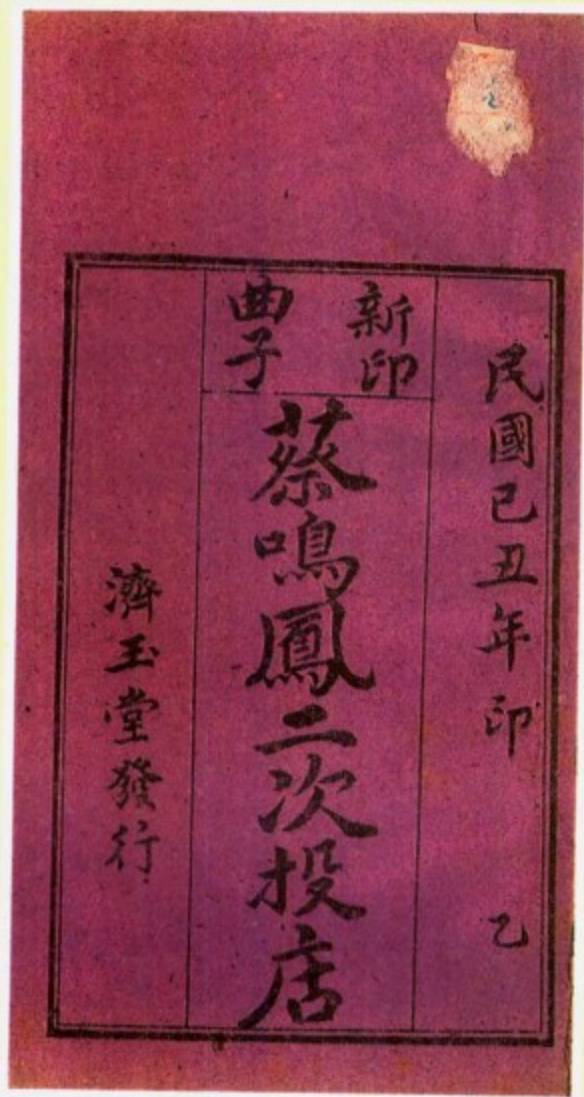 民國己丑年印 乙
新印
曲子
蔡鳴鳳二次投店
濟玉堂發行